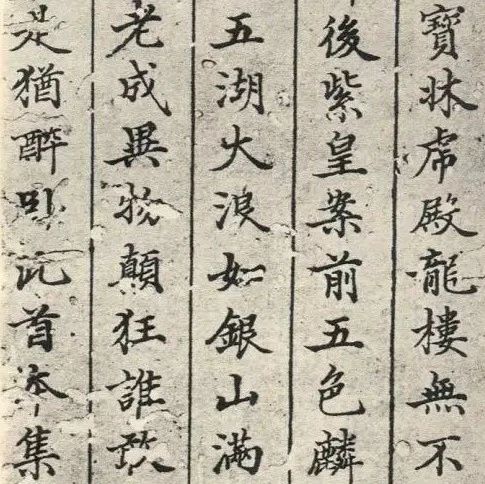 寶牀虎殿龍樓無不
後紫皇案前五色麟
五湖大浪如銀山滿
老成異物顛狂誰敢
是猶醉吟此首本集